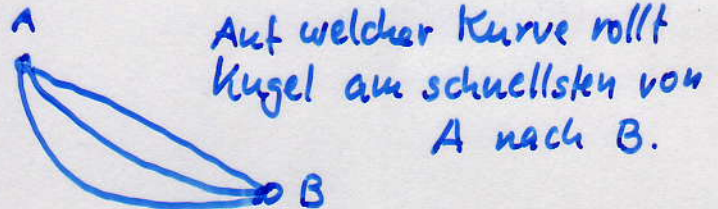 A
Auf welcher Kurve rollt
Kugel am schnellsten von
A nach B.
B